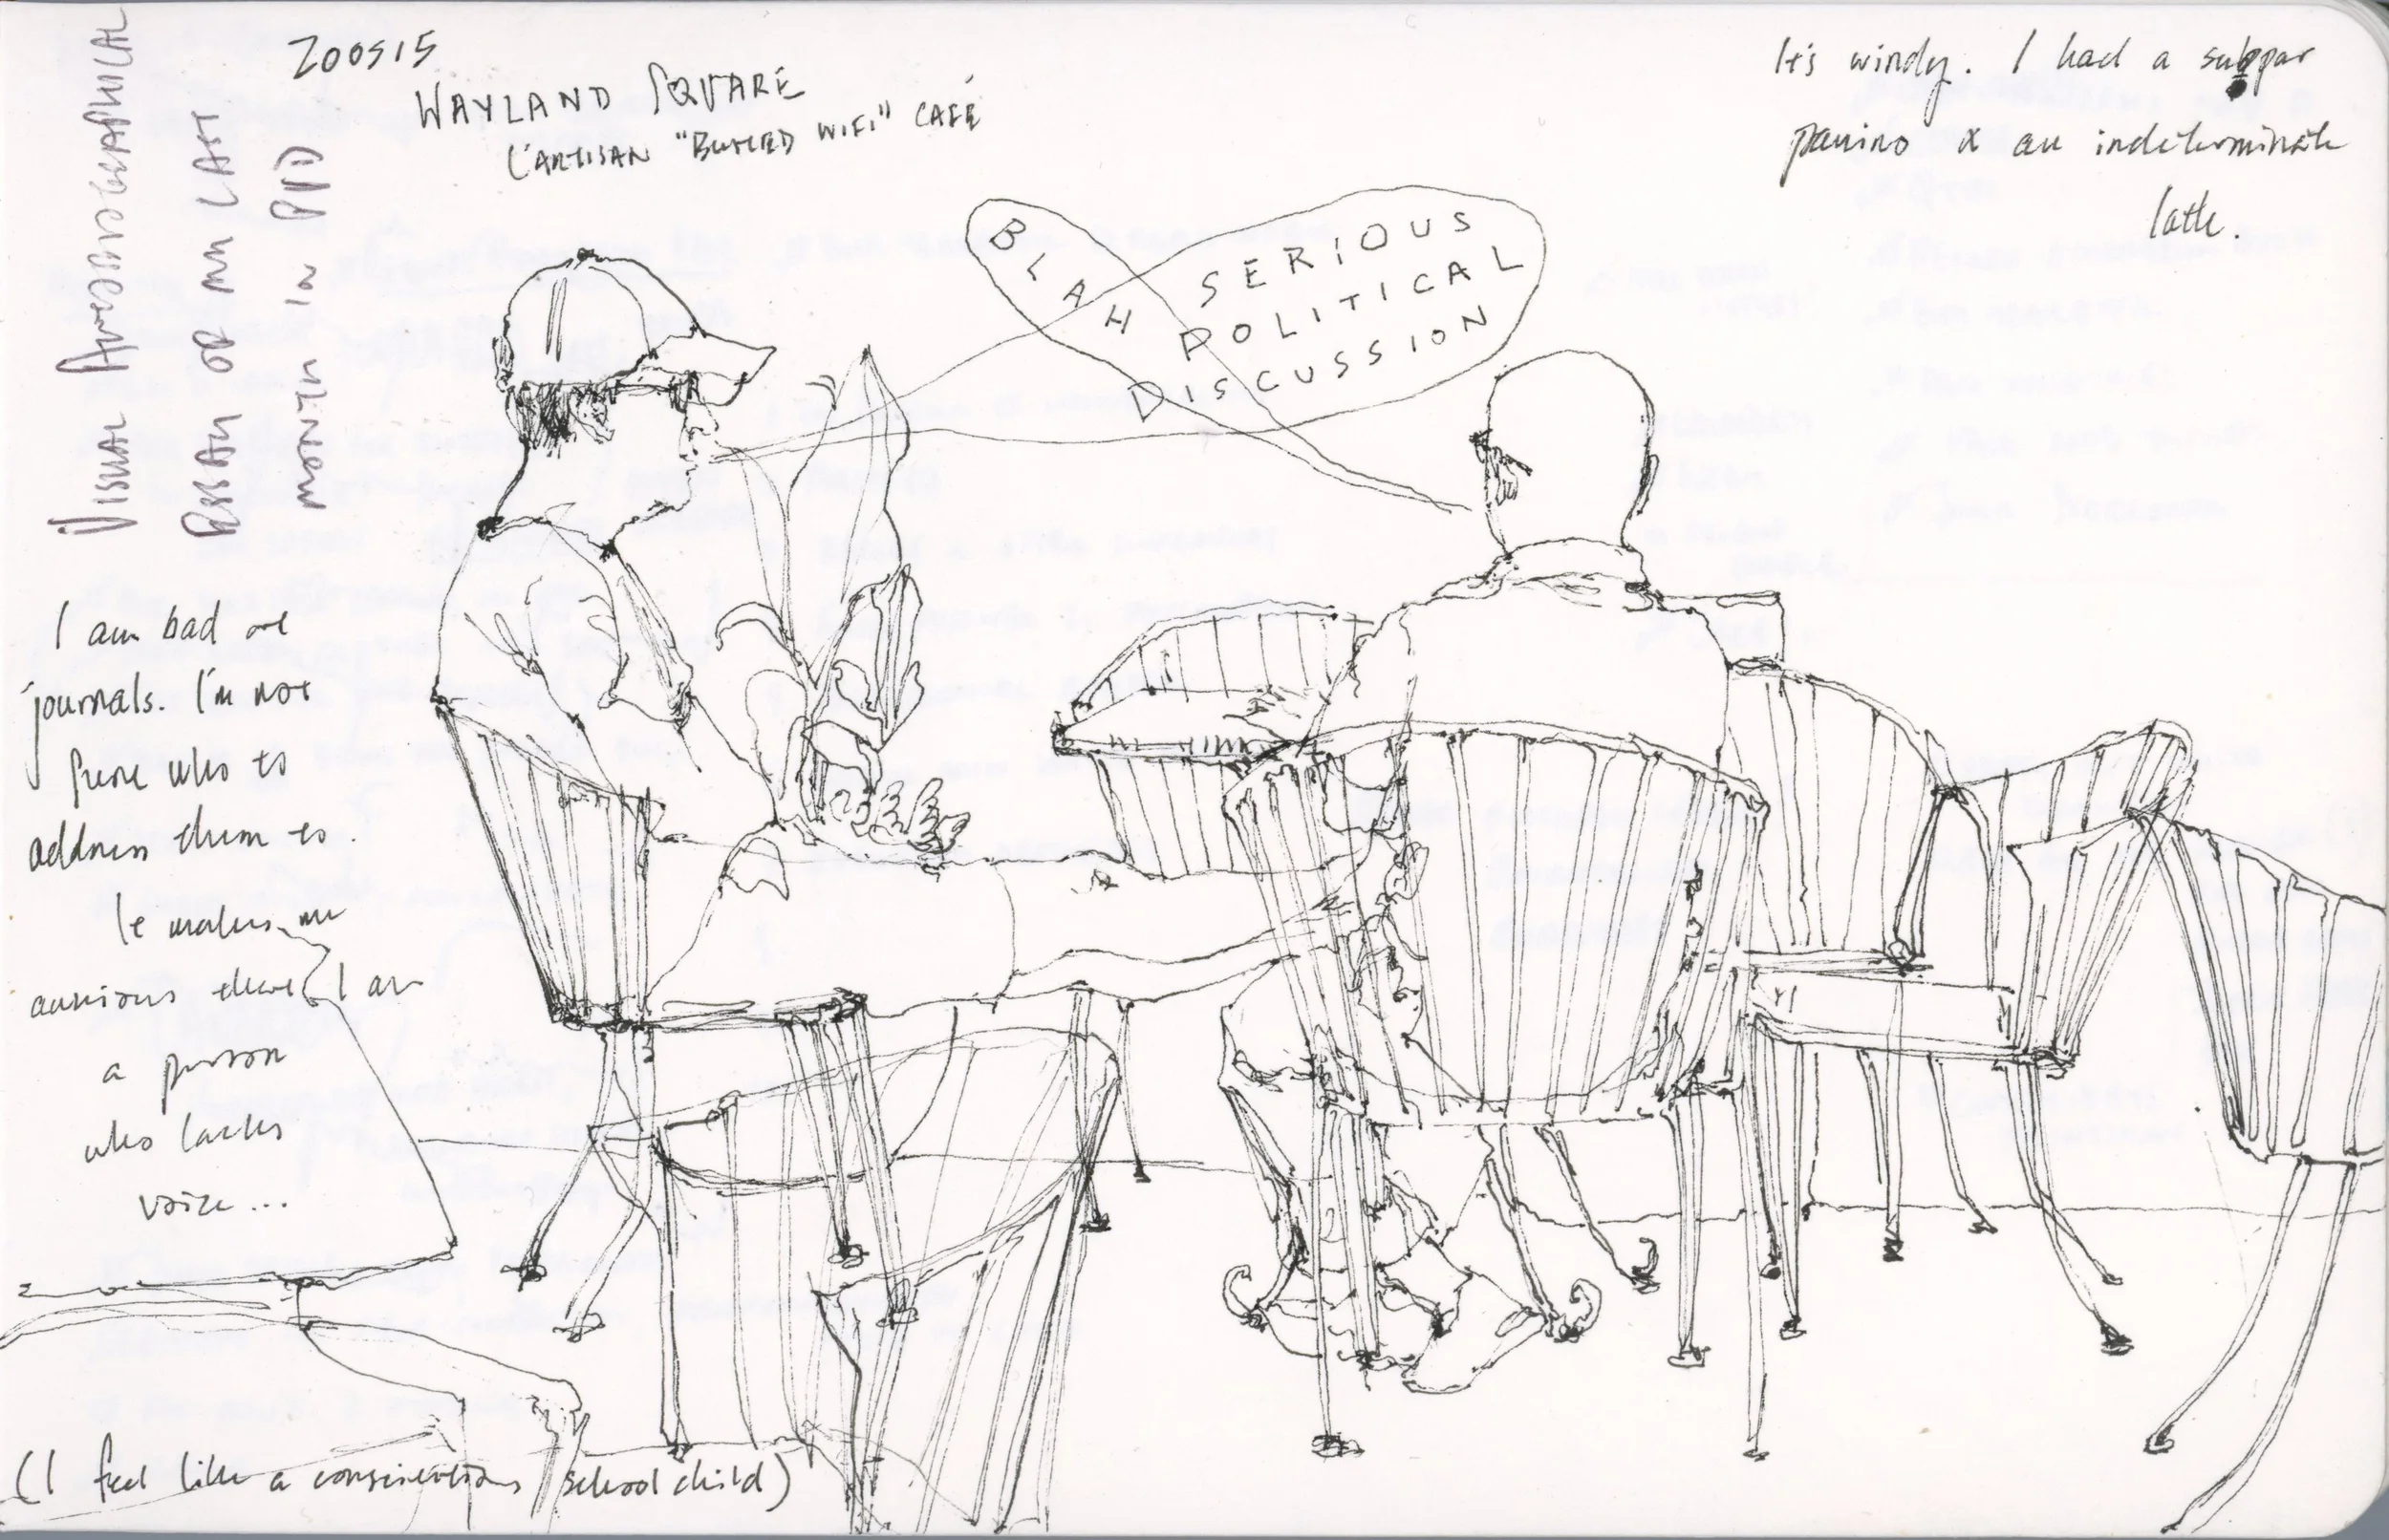 VISUAL AUTOBIOGRAPHICAL
ESSAY OF MY LAST
MONTH IN PVD
200515
WAYLAND SQUARE
L'ARTISAN "BUTLED WIFI" CAFÉ
It's windy. I had a subpar
panino & an indeterminate
latte.
BLAH
SERIOUS
POLITICAL
DISCUSSION
I am bad at
journals. I'm not
sure who to
address them to.
It makes me
anxious that I am
a person
who lacks
voice...
(I feel like a conscientious schoolchild)